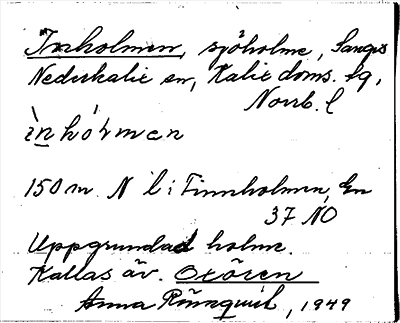 Inholmen, sjöholme, Sangis
Nederkalix sn, Kalix doms. tg,
Norrb. l
ìnhólmen
150 m N l: Finnholmen, Ek
37 NO
Uppgrundad holme.
Kallas äv. Oxören
Anna Rönnquist, 1949